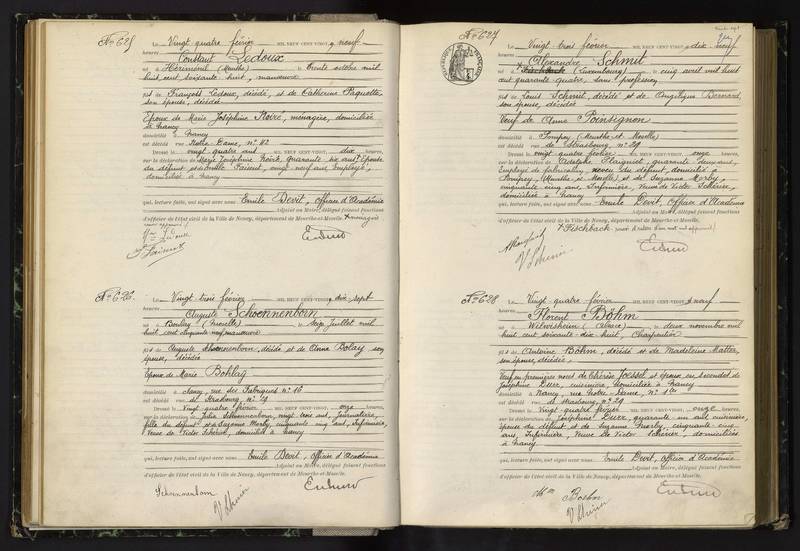 No 625
Le Vingt quatre février MIL NEUF CENT VINGT neuf
heures
Constant Ledoux
né à Herimenil (Meurthe) le trente octobre mil
huit cent soixante huit, manœuvre
fils de François Ledoux, décédé, et de Catherine Paquotte,
son épouse, décédée
Epoux de Marie Joséphine Noiré, ménagère, domiciliée
à Nancy
domicilié à Nancy
est décédé rue Notre Dame, no 42
Dressé le vingt quatre MIL NEUF CENT VINGT, dix heures,
sur la déclaration de Marie Joséphine Noiré, quarante six ans, Epouse
du défunt vingt neuf ans, Employé,
domiciliés à Nancy
qui, lecture faite, ont signé avec nous Emile Devit, Officier d'Académie
Adjoint au Maire, délégué faisant fonctions
d'officier de l'état civil de la Ville de Nancy, département de Meurthe-et-Moselle.
No 626
Le Vingt trois février MIL NEUF CENT VINGT, dix sept
heures
Auguste Schoennenborn
né à Boulay (Moselle) le seize Juillet mil
huit cent cinquante neuf, manœuvre
fils de Auguste Schoennenborn, décédé et de Anna Dolay son
épouse, décédée
Epoux de Marie Bohlag
domicilié à Nancy, rue des Fabriques no 16
est décédé rue de Strasbourg, no 29
Dressé le Vingt quatre février MIL NEUF CENT VINGT, onze heures,
sur la déclaration de Julia Schoennenborn, vingt trois ans, Journalière,
fille du défunt et de Suzanne Morby, cinquante cinq ans, Infirmière,
Veuve de Victor Schérier, domiciliées à Nancy
qui, lecture faite, ont signé avec nous Emile Devit, Officier d'Académie
Adjoint au Maire, délégué faisant fonctions
d'officier de l'état civil de la Ville de Nancy, département de Meurthe-et-Moselle.
Schoennenborn
No 627
Le Vingt trois février MIL NEUF CENT VINGT, dix neuf
heures
Alexandre Schmit
né à (Luxembourg) le cinq avril mil huit
cent quarante quatre, sans profession
fils de Louis Schmit, décédé et de Angélique Bernard,
son épouse, décédée
Veuf de Anne Poinsignon
domicilié à Pompey (Meurthe et Moselle)
est décédé rue de Strasbourg, no 29
Dressé le vingt quatre février MIL NEUF CENT VINGT, onze heures,
sur la déclaration de quarante deux ans,
Employé de fabrication, neveu du défunt, domicilié à
Pompey (Meurthe et Moselle) et de Suzanne Morby,
cinquante cinq ans, Infirmière, Veuve de Victor Schérier,
domiciliée à Nancy
qui, lecture faite, ont signé avec nous Emile Devit, Officier d'Académie
Adjoint au Maire, délégué faisant fonctions
d'officier de l'état civil de la Ville de Nancy, département de Meurthe-et-Moselle.
Fischbach
No 628
Le Vingt quatre février MIL NEUF CENT VINGT, neuf
heures
Florent Böhm
né à Wilwisheim (Alsace) le deux novembre mil
huit cent soixante dix huit, Charpentier
fils de Antoine Böhm, décédé et de Madeleine Matter,
son épouse, décédée,
Veuf en premières noces de Thérèse Jaessel et époux en secondes de
Joséphine Esser, cuisinière domiciliée à Nancy
domicilié à Nancy, rue Notre-Dame, no
est décédé rue de Strasbourg, no 29
Dressé le Vingt quatre février MIL NEUF CENT VINGT, onze heures,
sur la déclaration de Joséphine Esser, quarante un ans, cuisinière,
épouse du défunt et de Suzanne Morby, cinquante cinq
ans, Infirmière, Veuve de Victor Schérier, domiciliées
à Nancy
qui, lecture faite, ont signé avec nous Emile Devit, Officier d'Académie
Adjoint au Maire, délégué faisant fonctions
d'officier de l'état civil de la Ville de Nancy, département de Meurthe-et-Moselle.
Boehm